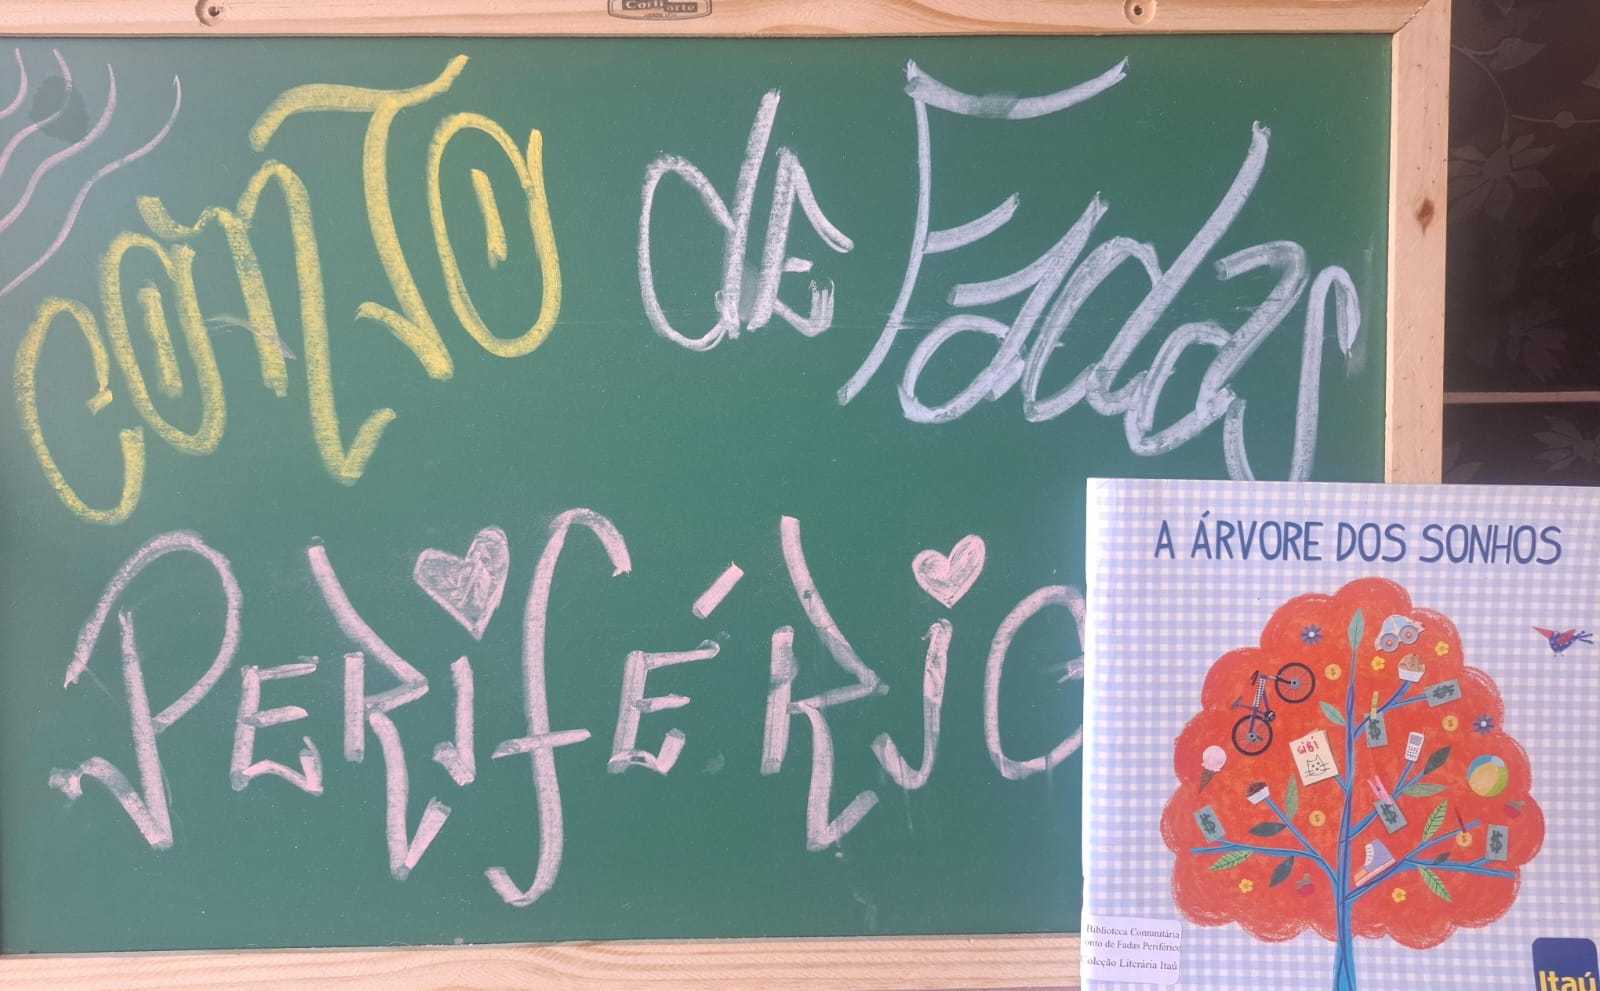 Corti arte
CONTO de Fadas
PERIFÉRICO
A ÁRVORE DOS SONHOS
GIBI
Biblioteca Comunitária
onto de Fadas Periférico
Coleção Literária Itaú
Itaú